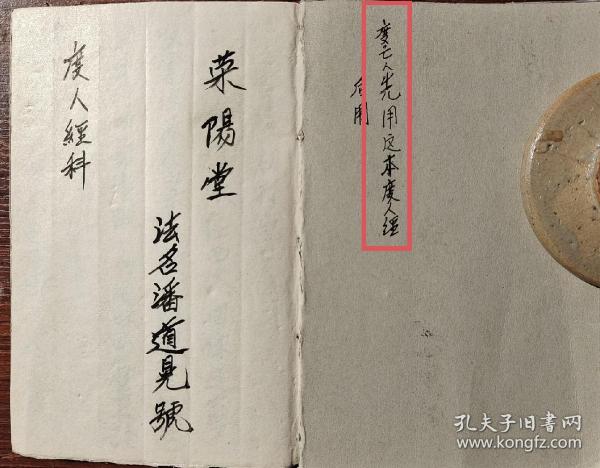 度亡人先用這本度人經
后用
荣陽堂
法名潘道晃號
度人經科
孔夫子旧书网
www.kongfz.com